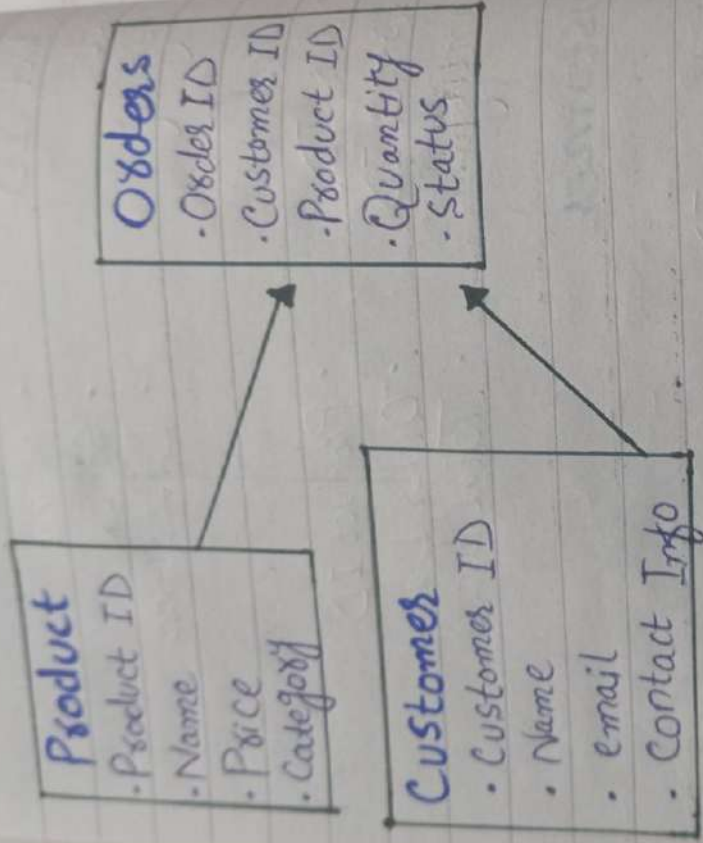 Product
· Product ID
· Name
· Price
· Category
Customer
· Customer ID
· Name
· email
· Contact Info
Orders
· Order ID
· Customer ID
· Product ID
· Quantity
· Status